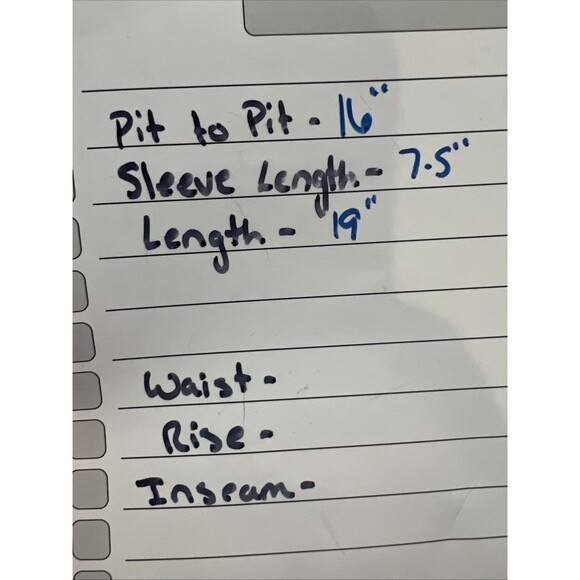 Pit to Pit - 16"
Sleeve Length - 7.5"
Length - 19"
Waist -
Rise -
Inseam -